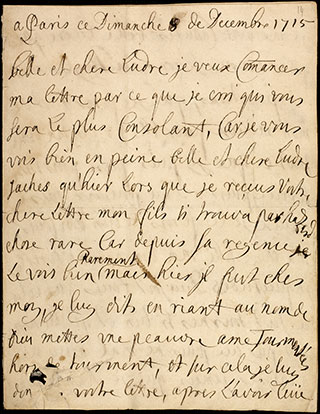 a Paris ce Dimanche 8 de Decembre 1715
belle et chere Ludre je veux Comancer
ma lettre par ce que je croi qui vous
sera Le plus Consolant, Car je vous
vois bien en peine belle et chere Ludre
saches qu'hier Lors que je reçus vostre
chere Lettre mon fils si trouva par
chose rare Car depuis sa regence je
Le vois bien rarement mais hier il fut ches
moy, je luy dits en riant au nom de
dieu mettes une peauvre ame
hors de tourment, et sur cela je luy
vostre lettre, apres L'avoir Lüe